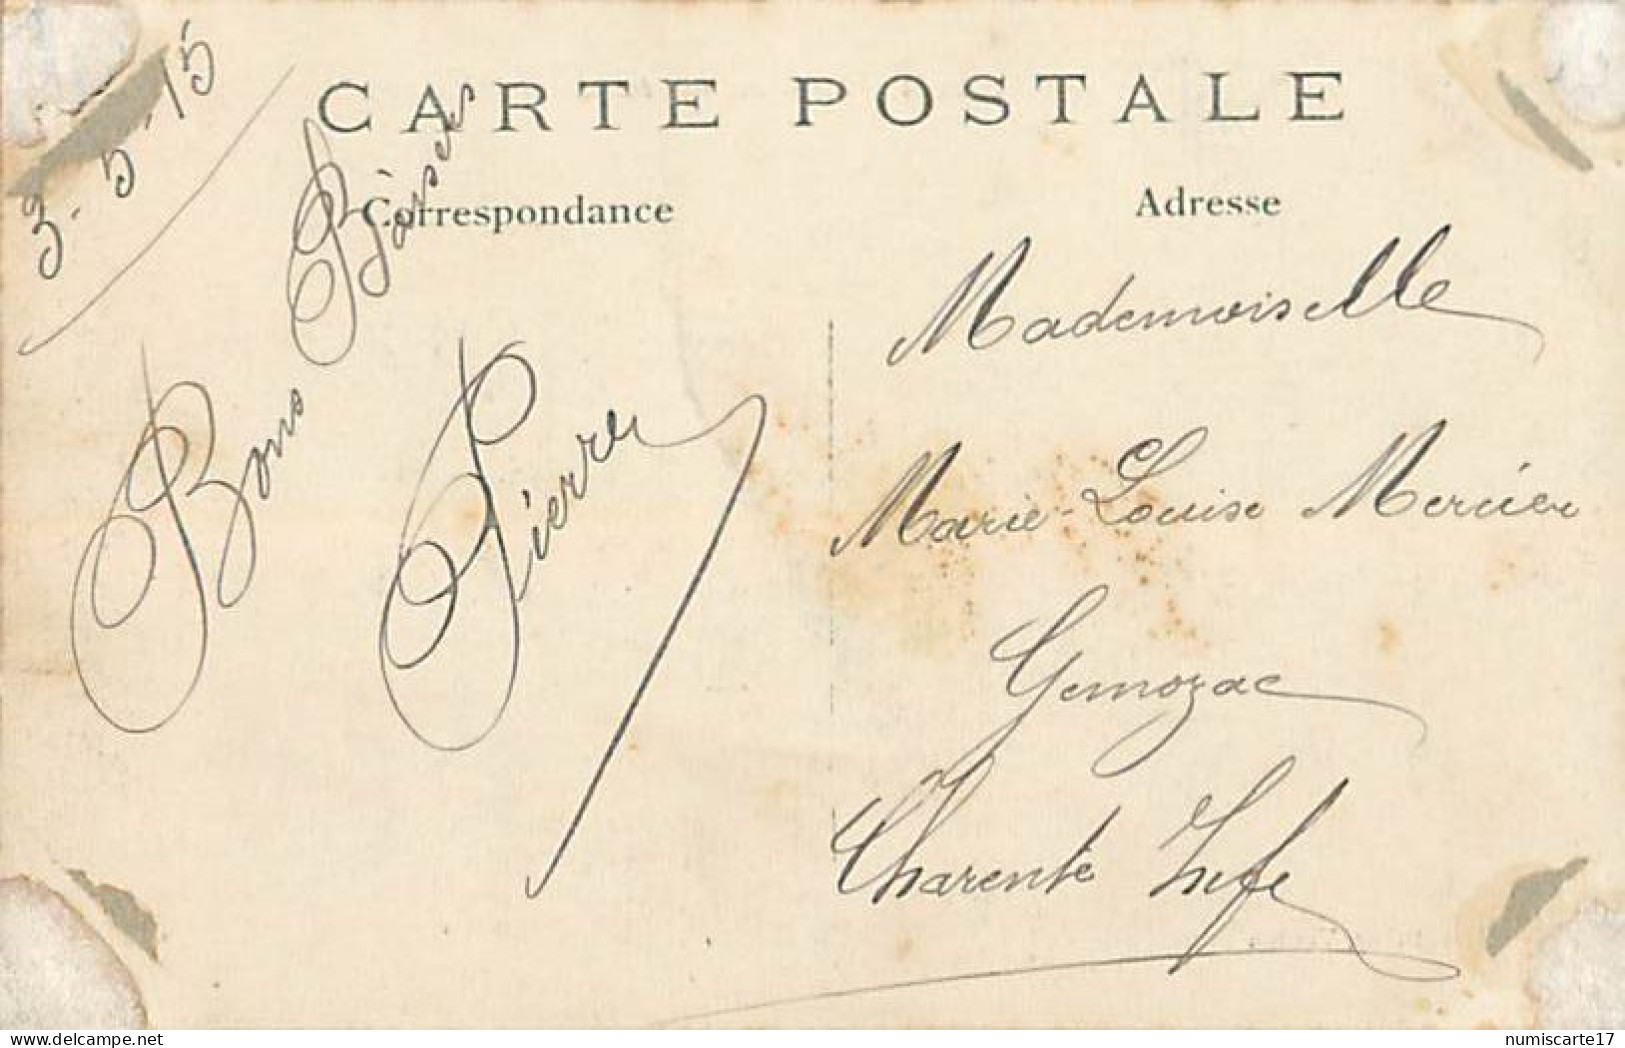 CARTE POSTALE
Correspondance
Adresse
3-5-15
Bons Baisers
Pierre
Mademoiselle
Marie-Louise Mercier
Gemozac
Charente Infe
delcampe.net
numiscarte17